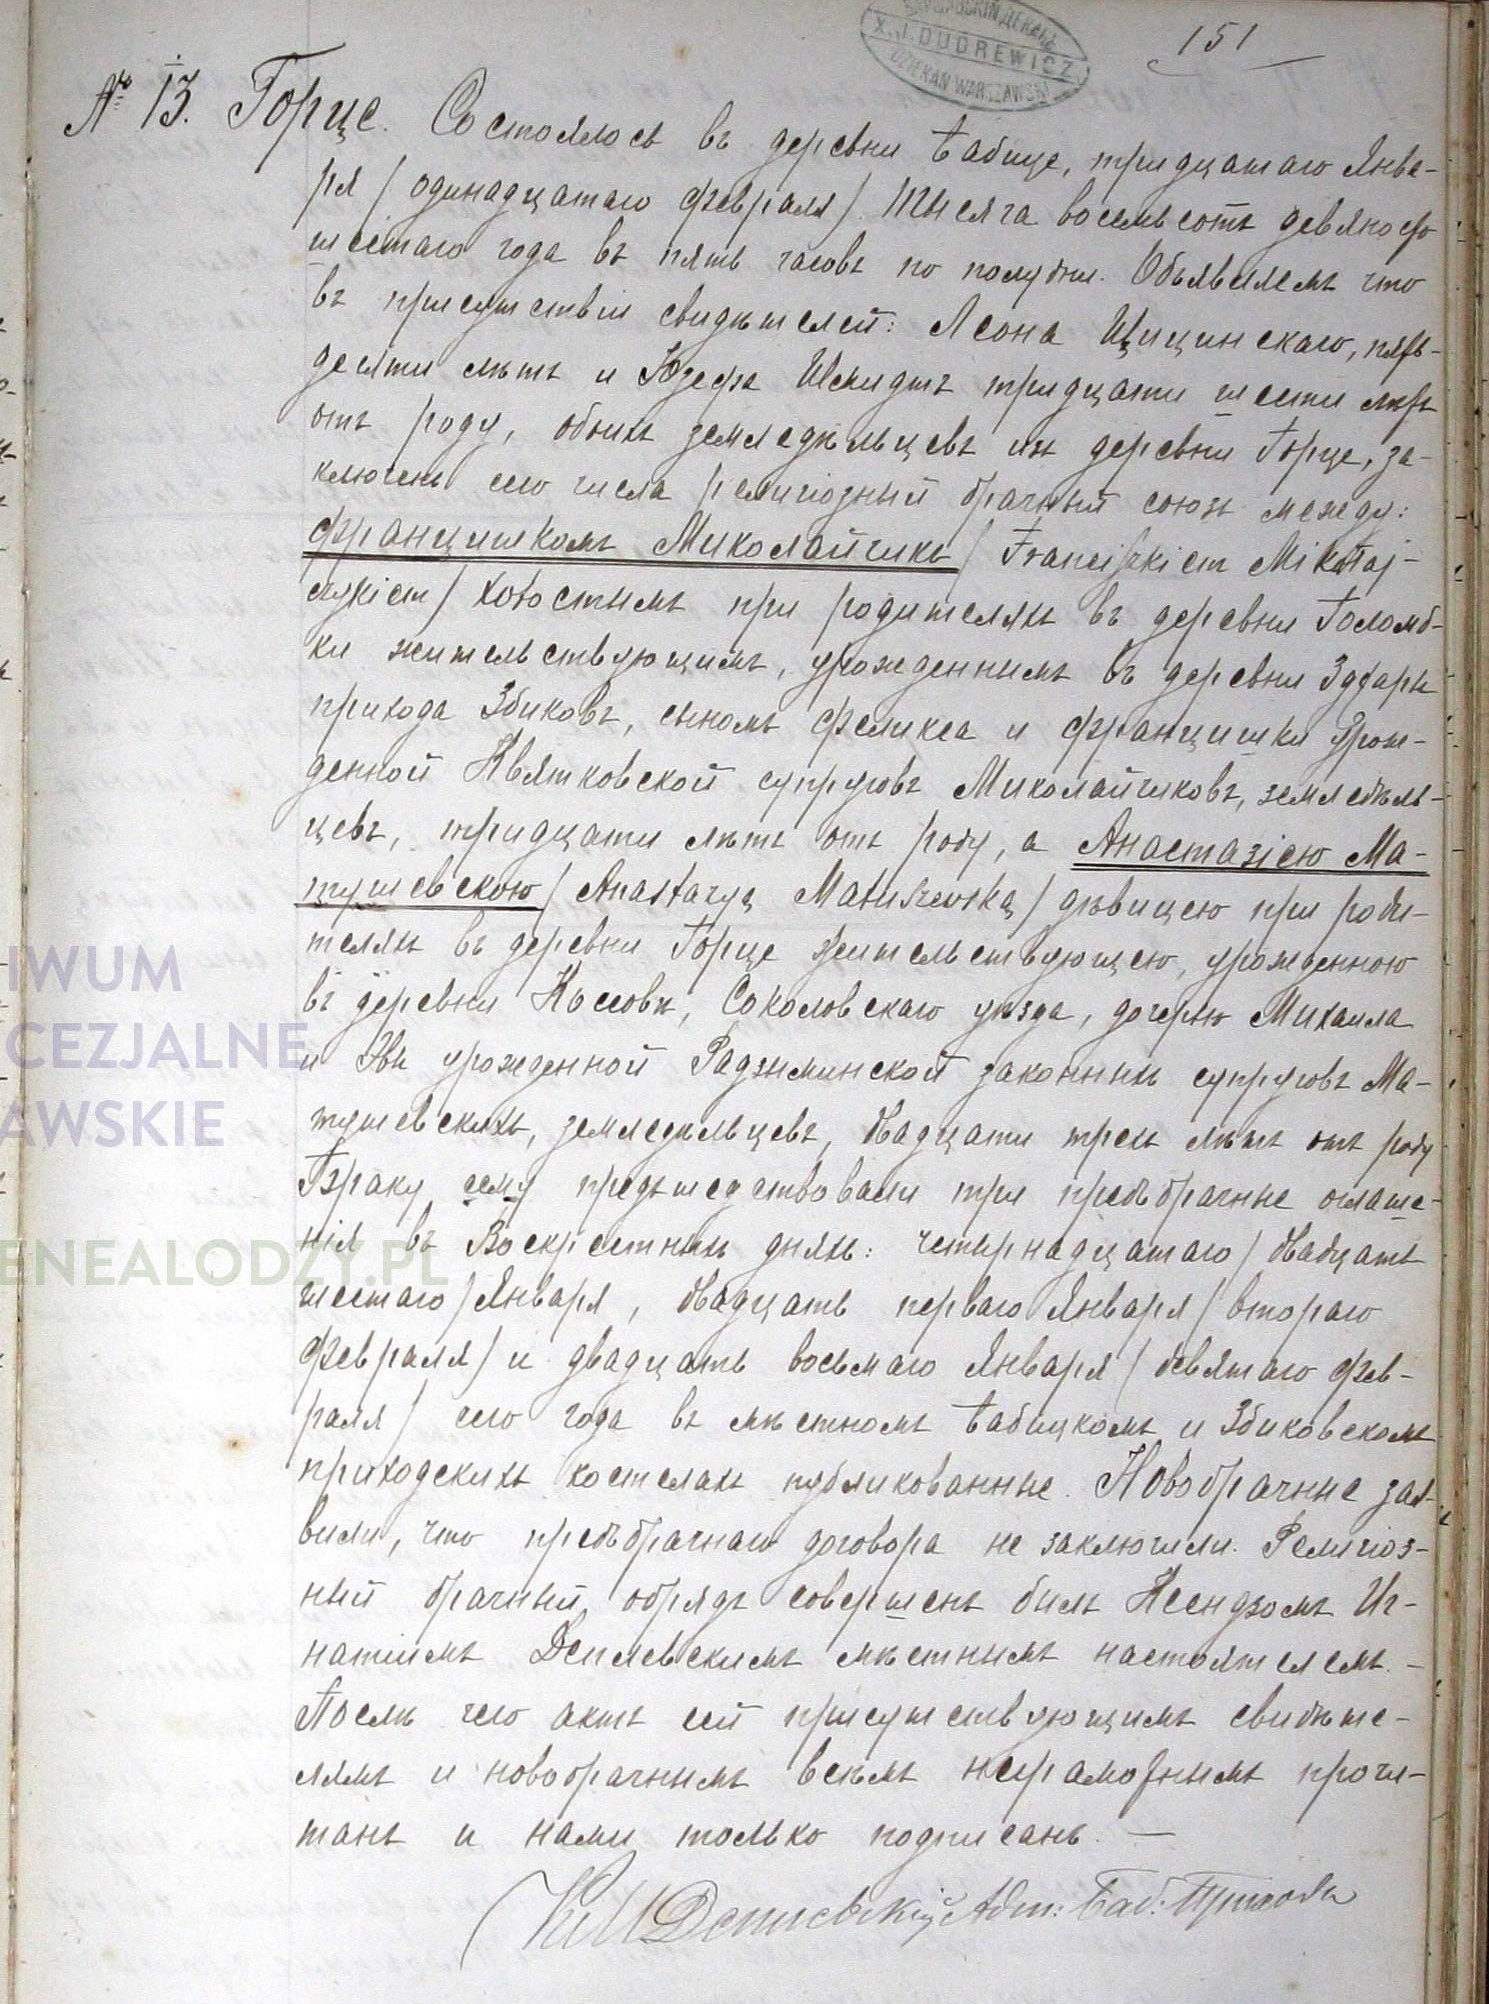 ВАРШАВСКІЙ ДЕКАНЪ
X. J. DUDREWICZ
DZIEKAN WARSZAWSKI
151
№ 13. Горце. Состоялось въ деревни Бабице, тридцатаго Янва-
ря / одинадцатаго Февраля / тысяча восемьсотъ девяносто
шестаго года въ пять часовъ по полудни. Объявляемъ что
въ присутствіи свидѣтелей: Леона Цицинскаго, пять-
десяти лѣтъ и Юзефа Шмидтъ тридцати шести лѣтъ
отъ роду, обоихъ земледѣльцевъ изъ деревни Горце, за-
ключенъ сего числа религіозный брачный союзъ между:
Францишкомъ Миколайчикъ / Franciszkiem Mikołaj-
czykiem / холостымъ при родителяхъ въ деревни Голомб-
ки жительствующимъ, урожденнымъ въ деревни Здзары
прихода Збиковъ, сыномъ Феликса и Францишки урож-
денной Квятковской супруговъ Миколайчиковъ, земледѣль-
цевъ, тридцати лѣтъ отъ роду, а Анастазіею Ма-
тушевскою / Anastazyą Matuszewską / дѣвицею при роди-
теляхъ въ деревни Горце жительствующею, урожденною
въ деревни Коссовѣ, Соколовскаго уѣзда, дочерью Михаила
и Эвы урожденной Радзиминской законныхъ супруговъ Ма-
тушевскихъ, земледѣльцевъ, двадцати трехъ лѣтъ отъ роду
Браку сему предшедствовали три предбрачные оглаше-
нія въ Воскрестныхъ дняхъ: четырнадцатаго / двадцать
шестаго / Января, двадцать перваго Января / втораго
Февраля / и двадцать восьмаго Января / девятаго Фев-
раля / сего года въ мѣстномъ Бабицкомъ и Збиковскомъ
приходскихъ костелахъ публикованные. Новобрачные зая-
вили, что предбрачнаго договора не заключили. Религіоз-
ный брачный обрядъ совершенъ былъ Ксендзомъ Иг-
натіимъ Дениевскимъ мѣстнымъ настоятелемъ. –
Послѣ чего актъ сей присутствующимъ свидѣте-
лямъ и новобрачнымъ всѣмъ неграмотнымъ прочи-
танъ и нами только подписанъ. –
Адм: Баб: Прихода
IWUM
CEZJALNE
AWSKIE
ENEALODZY.PL